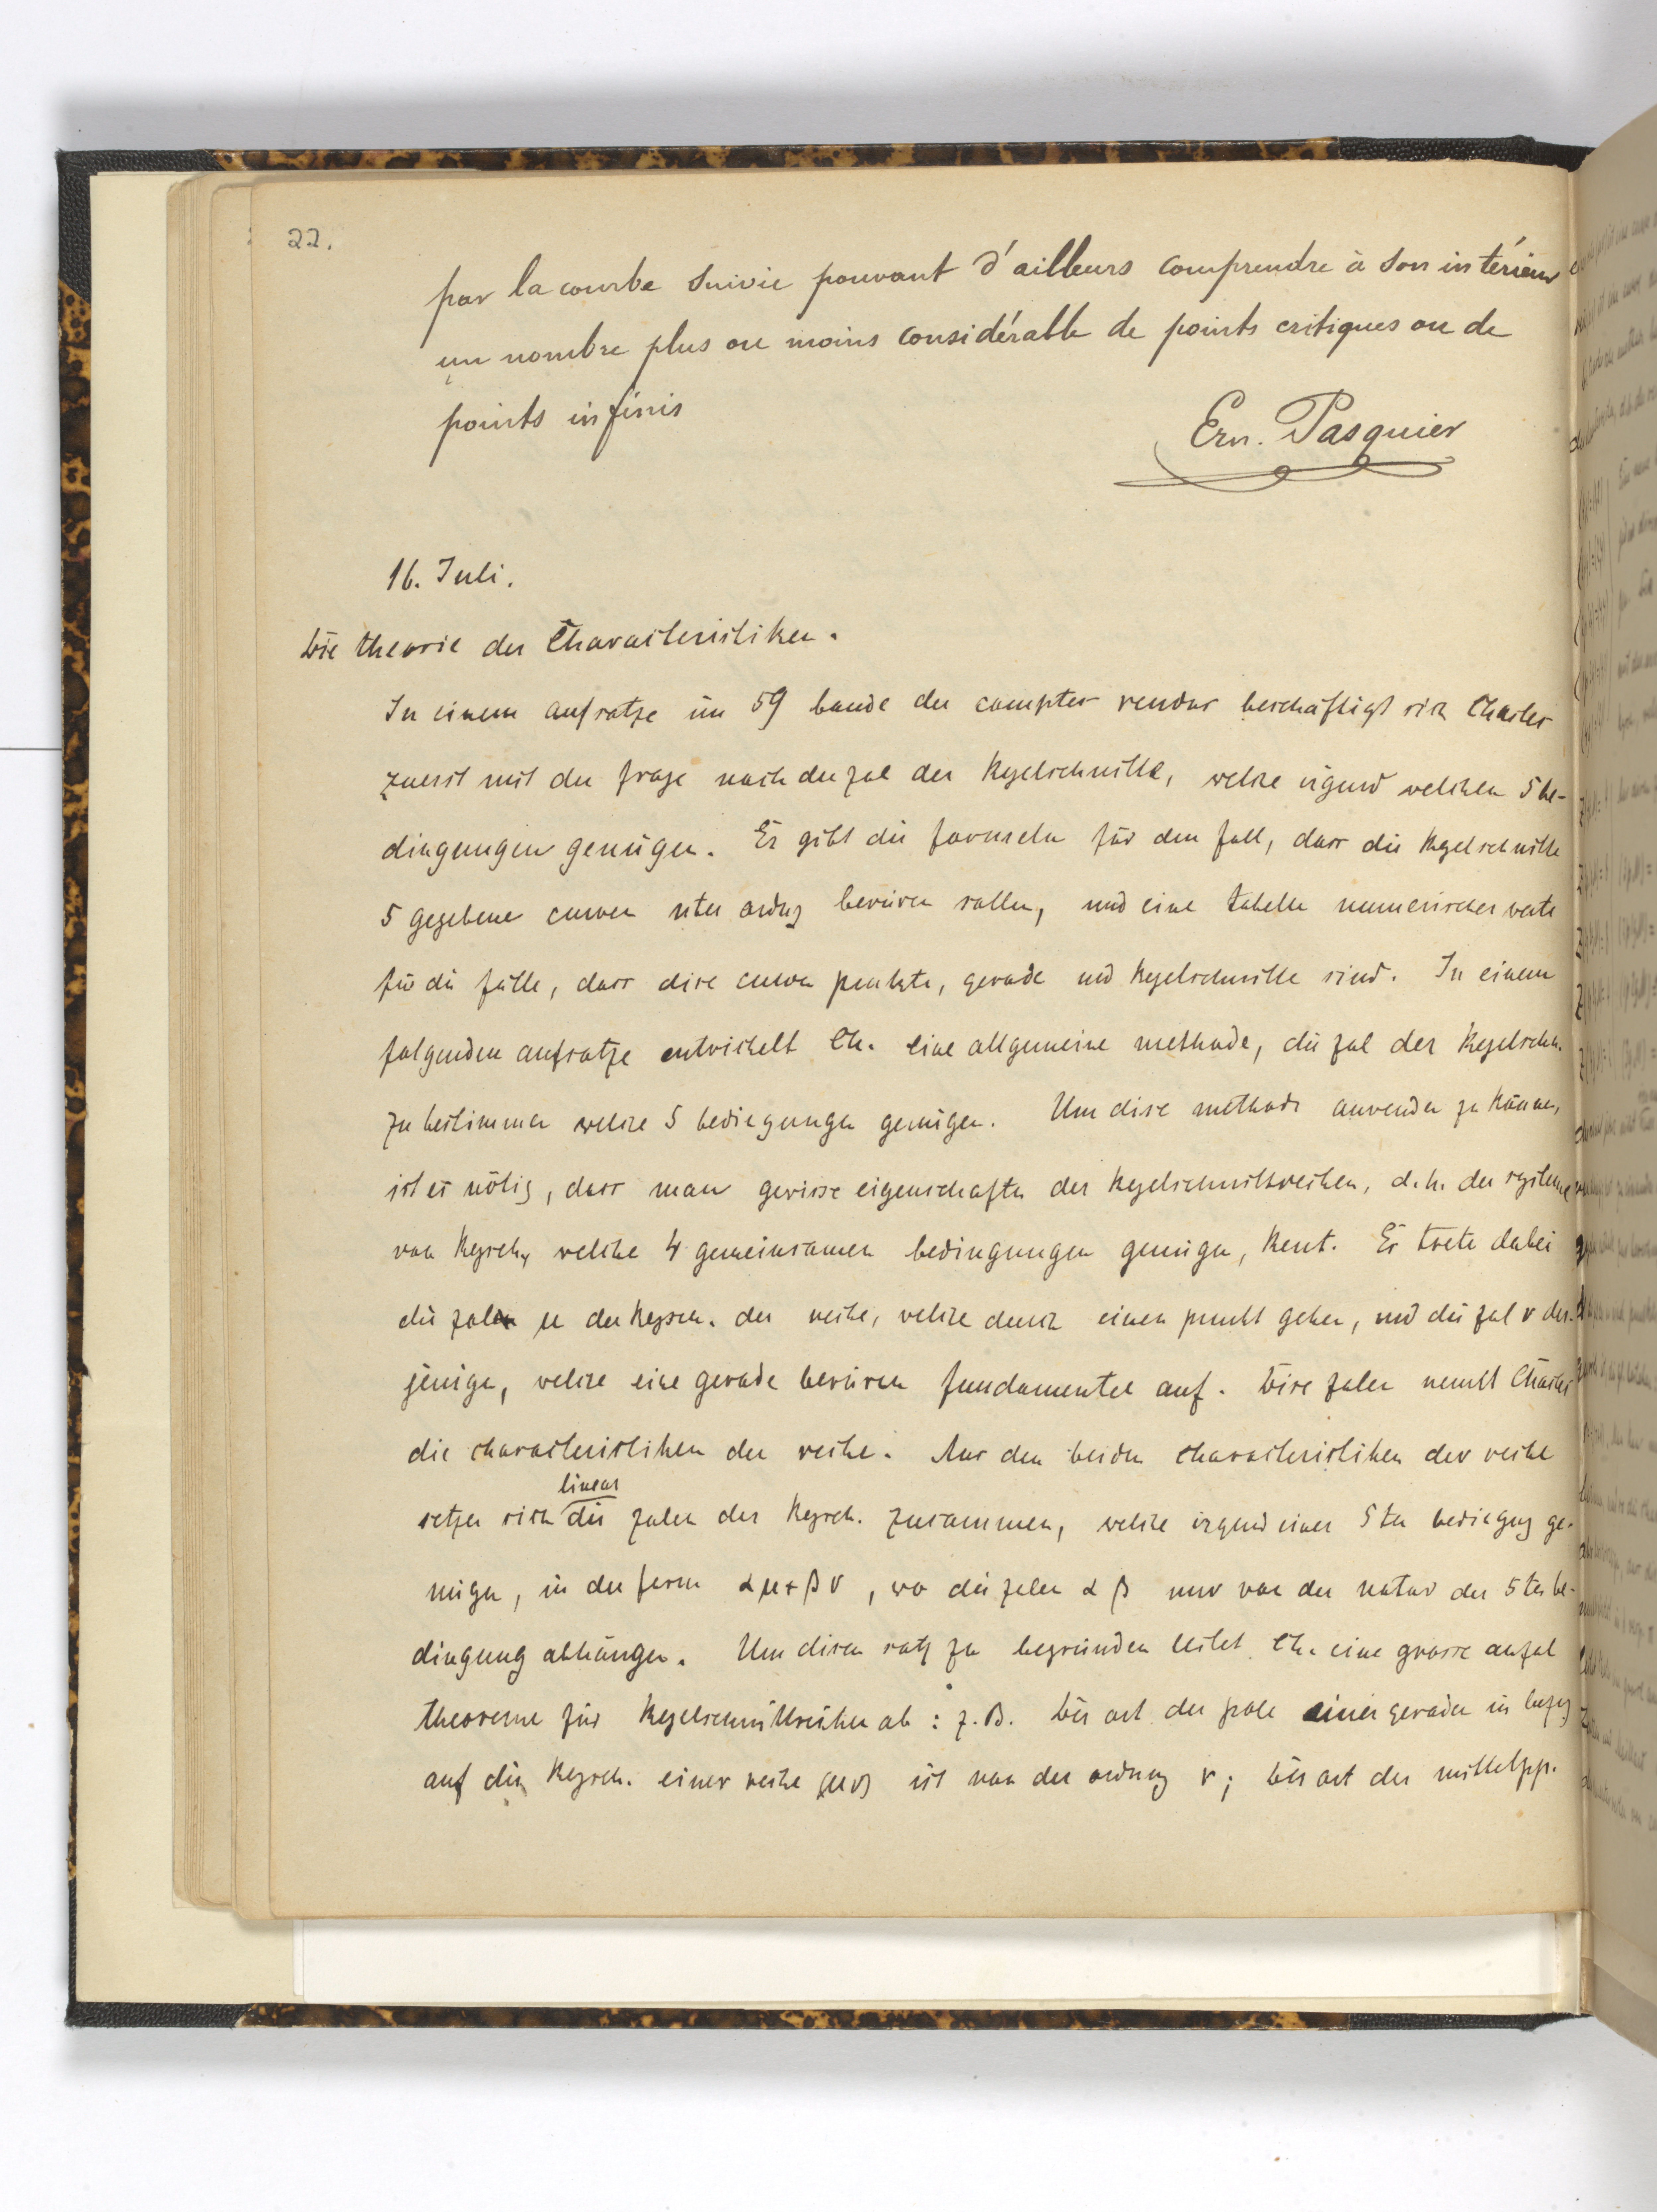 22.
par la courbe suivie pouvant d'ailleurs comprendre à son intérieur
un nombre plus ou moins considérable de points critiques ou de
points infinis
Ern. Pasquier
16. Juli.
Die theorie der Charakteristiken.
In einem aufsatze im 59 bande der comptes rendus beschäftigt sich Chasles
zuerst mit der frage nach der zal der Kegelschnitte, welche irgend welchen 5 be-
dingungen genügen. Er gibt die formeln für den fall, dass die Kegelschnitte
5 gegebene curven nter ordng berüren sollen, und eine tabelle numerischer werte
für die fälle, dass dise curven punkte, gerade und Kegelschnitte sind. In einem
folgenden aufsatze entwickelt Ch. eine allgemeine methode, die zal der Kegelschn.
zu bestimmen welche 5 bedingungen genügen. Um dise methode anwenden zu können,
ist es nötig, dass man gewisse eigenschaften der Kegelschnittreihen, d.h. der systeme
von Kegsch, welche 4 gemeinsamen bedingungen genügen, kent. Es trete dabei
die zal μ der Kegsch. der reihe, welche durch einen punkt gehen, und die zal ν der-
jenigen, welche eine gerade berüren fundamentel auf. Dise zalen nennt Chasles
die charakteristiken der reihe. Aus den beiden charakteristiken der reihe
linear
setzen sich die zalen der Kegsch. zusammen, welche irgend einer 5ten bedingung ge-
nügen, in der form αμ+βν, wo die zalen α β nur von der natur der 5ten be-
dingung abhängen. Um disen satz zu begründen leitet Ch. eine grosse anzal
theoreme für Kegelschnittreihen ab: z.B. Der ort der pole einer geraden in bezug
auf die Kegsch. einer reihe (μν) ist von der ordnung ν; der ort der mittelpp.